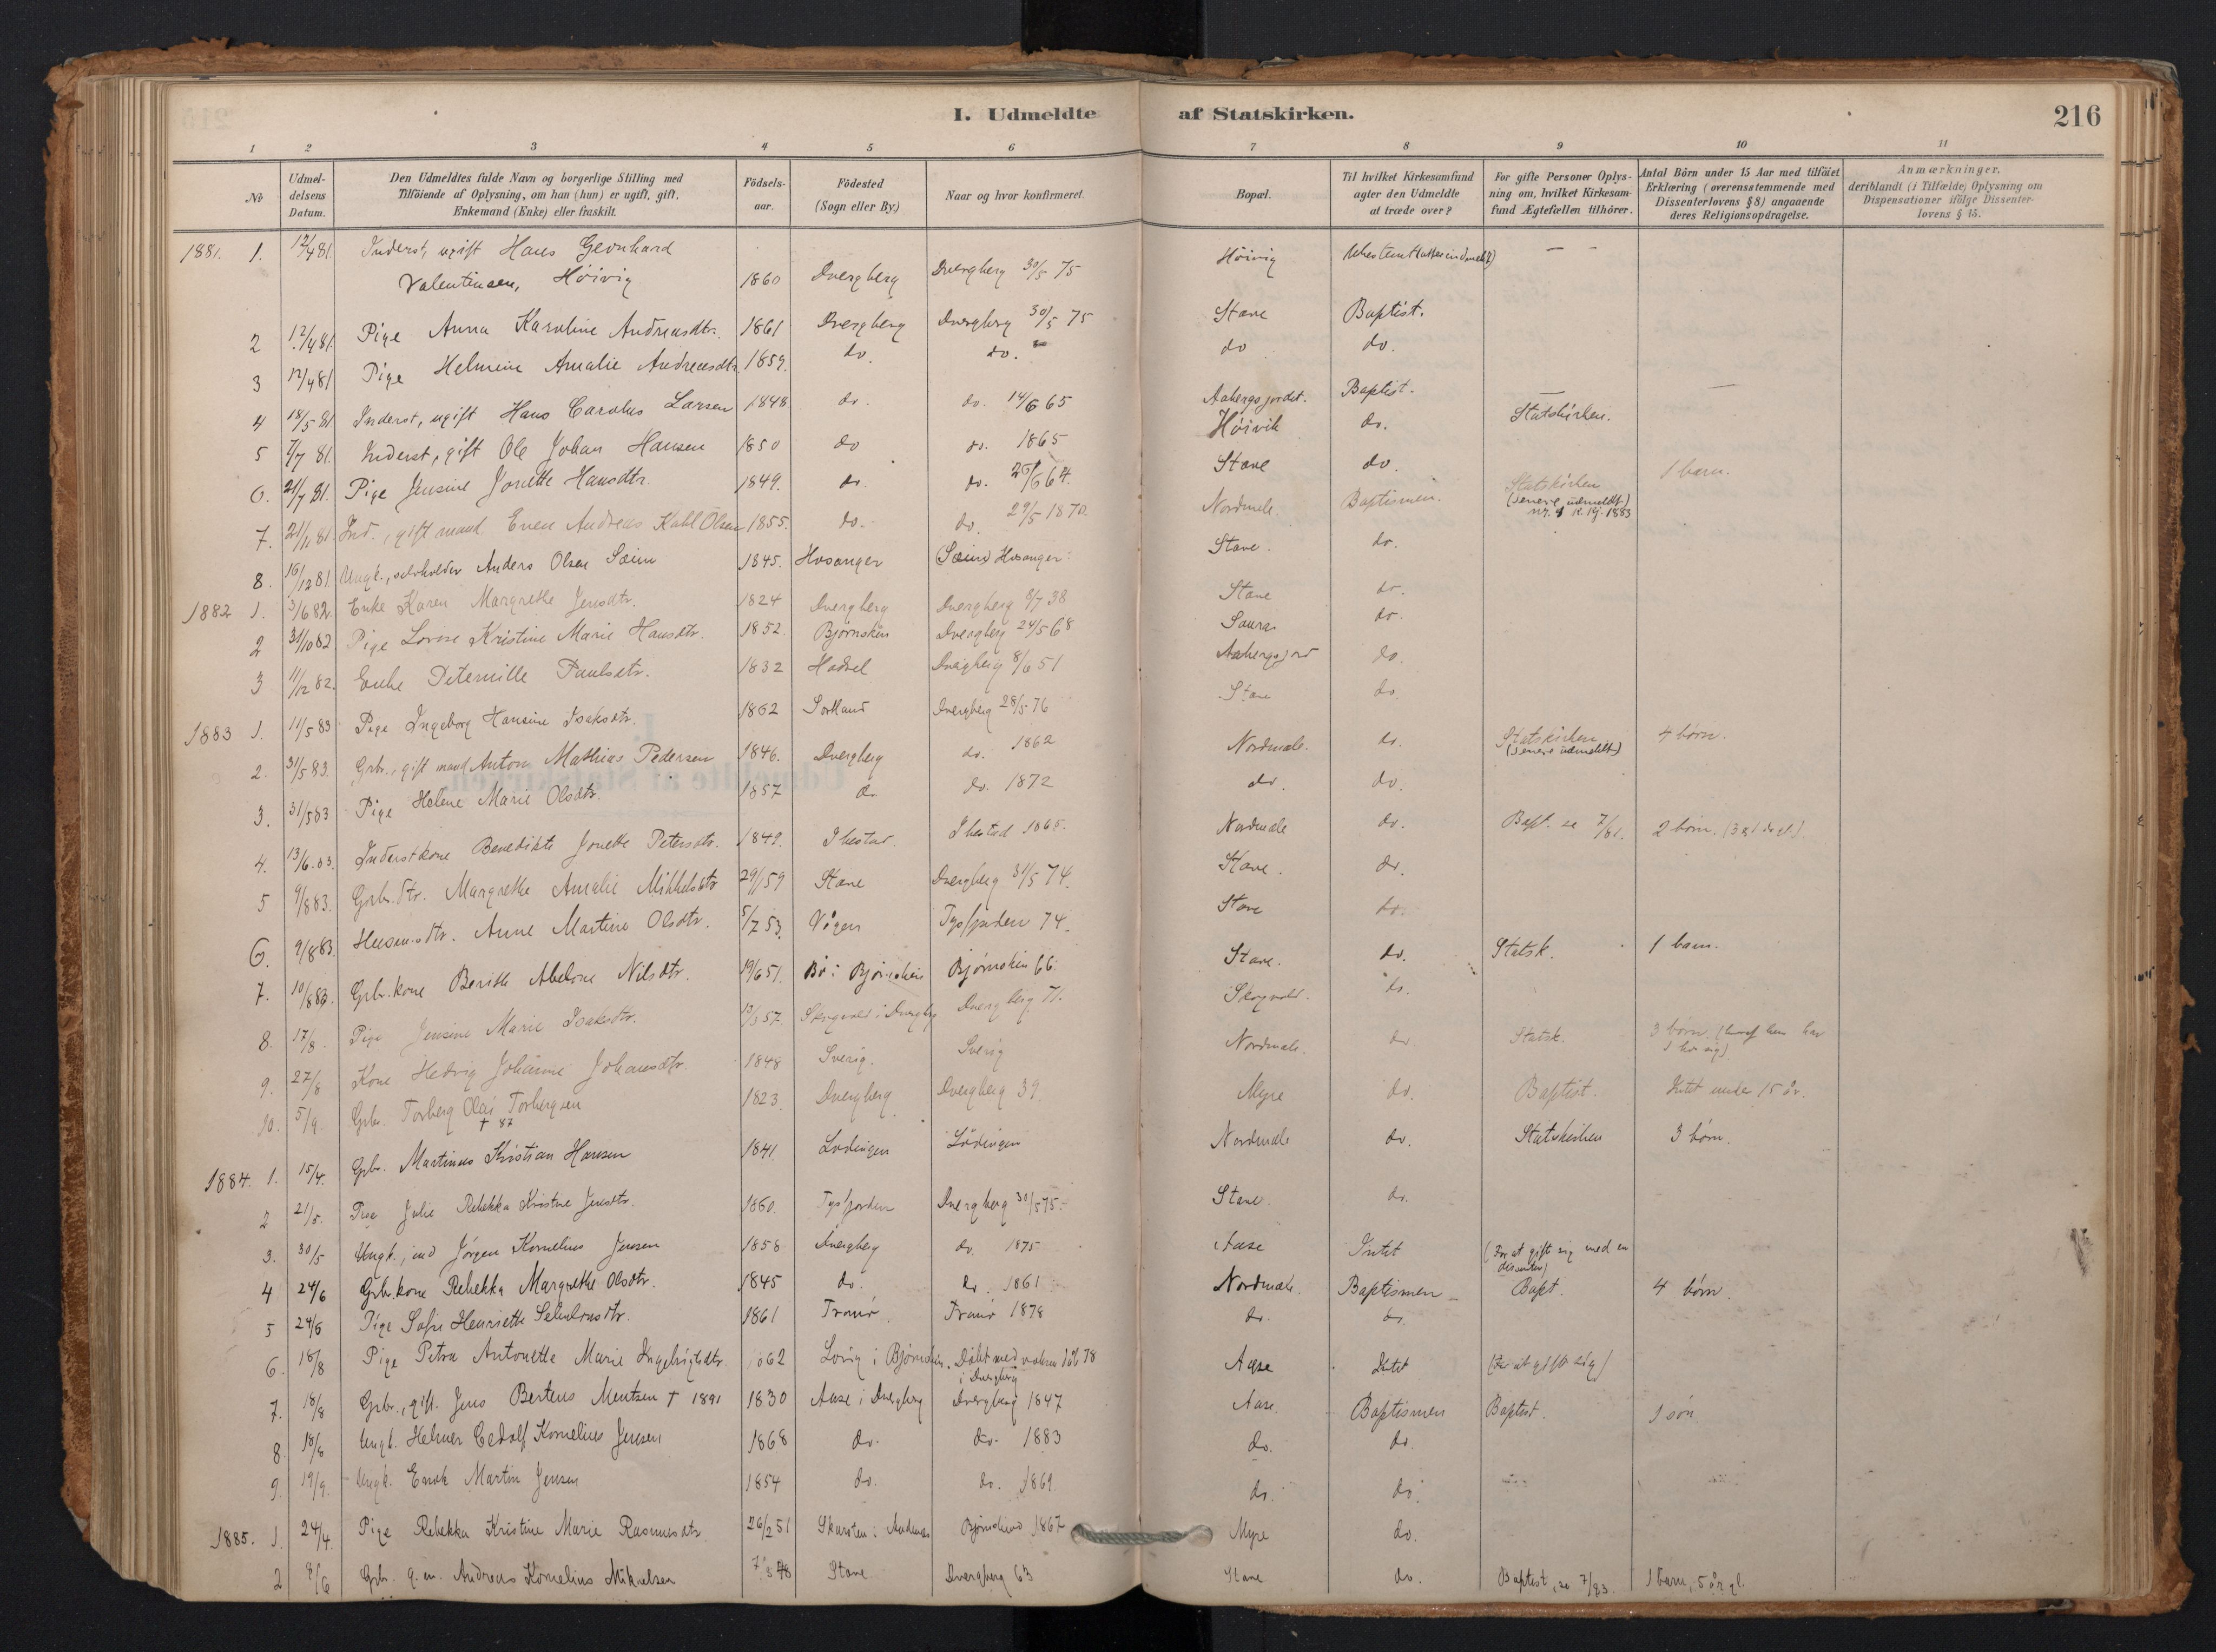 I. Udmeldte af Statskirken. 216
1 2 3 4 5 6 7 8 9 10 11
№ Udmeldelsens Datum. Den Udmeldtes fulde Navn og borgerlige Stilling med Tilföiende af Oplysning, om han (hun) er ugift, gift, Enkemand (Enke) eller fraskilt. Födselsaar. Födested (Sogn eller By.) Naar og hvor konfirmeret. Bopæl. Til hvilket Kirkesamfund agter den Udmeldte at træde over? For gifte Personer Oplysning om, hvilket Kirkesamfund Ægtefællen tilhörer. Antal Börn under 15 Aar med tilföiet Erklæring (overensstemmende med Dissenterlovens § 8) angaaende deres Religionsopdragelse. Anmærkninger, deriblandt (i Tilfælde) Oplysning om Dispensationer ifölge Dissenterlovens § 15.
1881. 1. 12/4 81 Inderst, ugift Hans Gevnhard
Valentinsen, Höivig 1860 Dvergberg Dvergberg 30/5 75 Höivig — —
2 12/4 81. Pige Anna Karoline Andreasdtr. 1861 Dvergberg Dvergberg 30/5 75 Stave Baptist.
3 12/4 81 Pige Helmine Amalie Andreasdtr 1859. do. do. do do.
4 18/5 81 Inderst, ugift Hans Carolus Larsen 1848 do. do. 14/6 65 Aabergsjordet. Baptist. — —
5 7/7 81. Inderst, gift Ole Johan Hansen 1850 do do. 1865 Höivik do. Statskirken.
6. 21/7 81. Pige Jensine Jonette Hansdtr. 1849. do. do. 25/6 64. Stave do.
7. 21/11 81. Ind., gift mand, Even Andreas Kahl Olsen 1855. do. do. 29/5 1870. Nordmele Baptismen. Statskirken (senere udmeldt) nr. 9 K. Kj. 1883 1 barn.
8. 16/12 81. Ungk., selvholder Anders Olsen Sæim 1845. Hosanger (Sæim) Hosanger Stave. do.
1882 1. 3/6 82. Enke Karen Margrethe Jensdtr. 1824 Dvergberg Dvergberg 8/7 38 Stave do.
2 31/10 82 Pige Lovise Kristine Marie Hansdtr. 1852. Bjørnskin Dvergberg 24/5 68 Saura do.
3 11/12 82. Enke Peternille Paulsdtr. 1832 Hadsel Dvergberg 8/6 51 Aabergsjord do.
1883 1. 11/5 83 Pige Ingeborg Hansine Isaksdtr. 1862 Sortland Dvergberg 28/5 76 Stave do.
2. 31/5 83. Grbr., gift mand Anton Mathias Pedersen 1846. Dvergberg do. 1862 Nordmele. do. Statskirken (senere udmeldt) 4 børn.
3. 31/5 83 Pige Helene Marie Olsdtr. 1857 do do. 1872 do. do.
4. 13/6. 83. Inderstkone Benedikte Jonette Petersdtr. 1849. Ibestad. Ibestad 1865. Nordmele do. Bapt. se 7/81. 2 børn.
5 9/8 83. Grbr.dtr. Margrethe Amalie Mikkelsdtr 29/1 59 Stave Dvergberg 31/5 74. Stave. do.
6. 9/8 83. Husm.dtr. Anne Martine Olsdtr. 5/7 53. Vågen Tysfjorden 74. Stave do.
7. 10/8 83. Grbr.kone Berith Abelone Nilsdtr. 19/6 51. Bø i Bjørnskin Bjørnskin 66 Stave. do. Statsk. 1 barn.
8. 17/8. Pige Jensine Marie Isaksdtr. 13/3 57. Skogvold i Dvergberg Dvergberg 71. Skogvold. do.
9. 27/8 Kone Hedvig Johanne Johansdtr. 1848 Sverig. Sverig Nordmele. do. Statsk. 3 børn. (hvoraf hun har 1 hos sig)
10. 5/9. Grbr. Torberg Olai Torbergsen † 87 1823. Dvergberg Dvergberg 39. Myre do. Baptist. Intet under 15 år.
1884. 1. 15/4. Grbr. Martinus Kristian Hansen 1841. Lødingen Lödingen Nordmele do. Statskirken 3 børn.
2 21/5. Pige Julie Rebekka Kristine Jensdtr. 1860. Tysfjorden Dvergberg 30/5 75. Stave. do.
3. 30/5 Ungk., ind Jørgen Kornelius Jensen 1858 Dvergberg do. 1875 Aase Intet (For at gift sig med en dissenter)
4 24/6 Grbr.kone Rebekka Margrethe Olsdtr. 1845 do. do. 1861 Nordmele. Baptismen Bapt. 4 børn.
5 24/6 Pige Sofie Henriette 1861 Tranø Tranø 1878 do. do.
6. 18/8 Pige Petra Antonette Marie Ingebrigtsdtr. 1862 Lovig i Bjørnskin. Døbt med voksen dåb 78 i Dvergberg Aase Intet (For at gifte sig)
7. 18/8 Grbr., gift. Jens Berteus Mentsen † 1891 1830 Aase i Dvergberg Dvergberg 1847 Aase. Baptismen Baptist. 1 søn
8. 18/8 Ungk. Helmer Cedolf Kornelius Jensen 1868 do. do. 1883 do. do.
9. 19/9. Ungk. Enok Martin Jensen 1854 do. do. 1869 do. do.
1885. 1. 24/4. Pige Rebekka Kristine Marie Rasmusdtr 26/2 51 Skarsten i Andenes Bjørnskind 1867 Myre do.
2 8/6 Grbr. g. m. Andreas Kornelius Mikkelsen 48 Stave Dvergberg 63 Stave do. Baptist, se 7/83. 1 barn, 5 år gl.